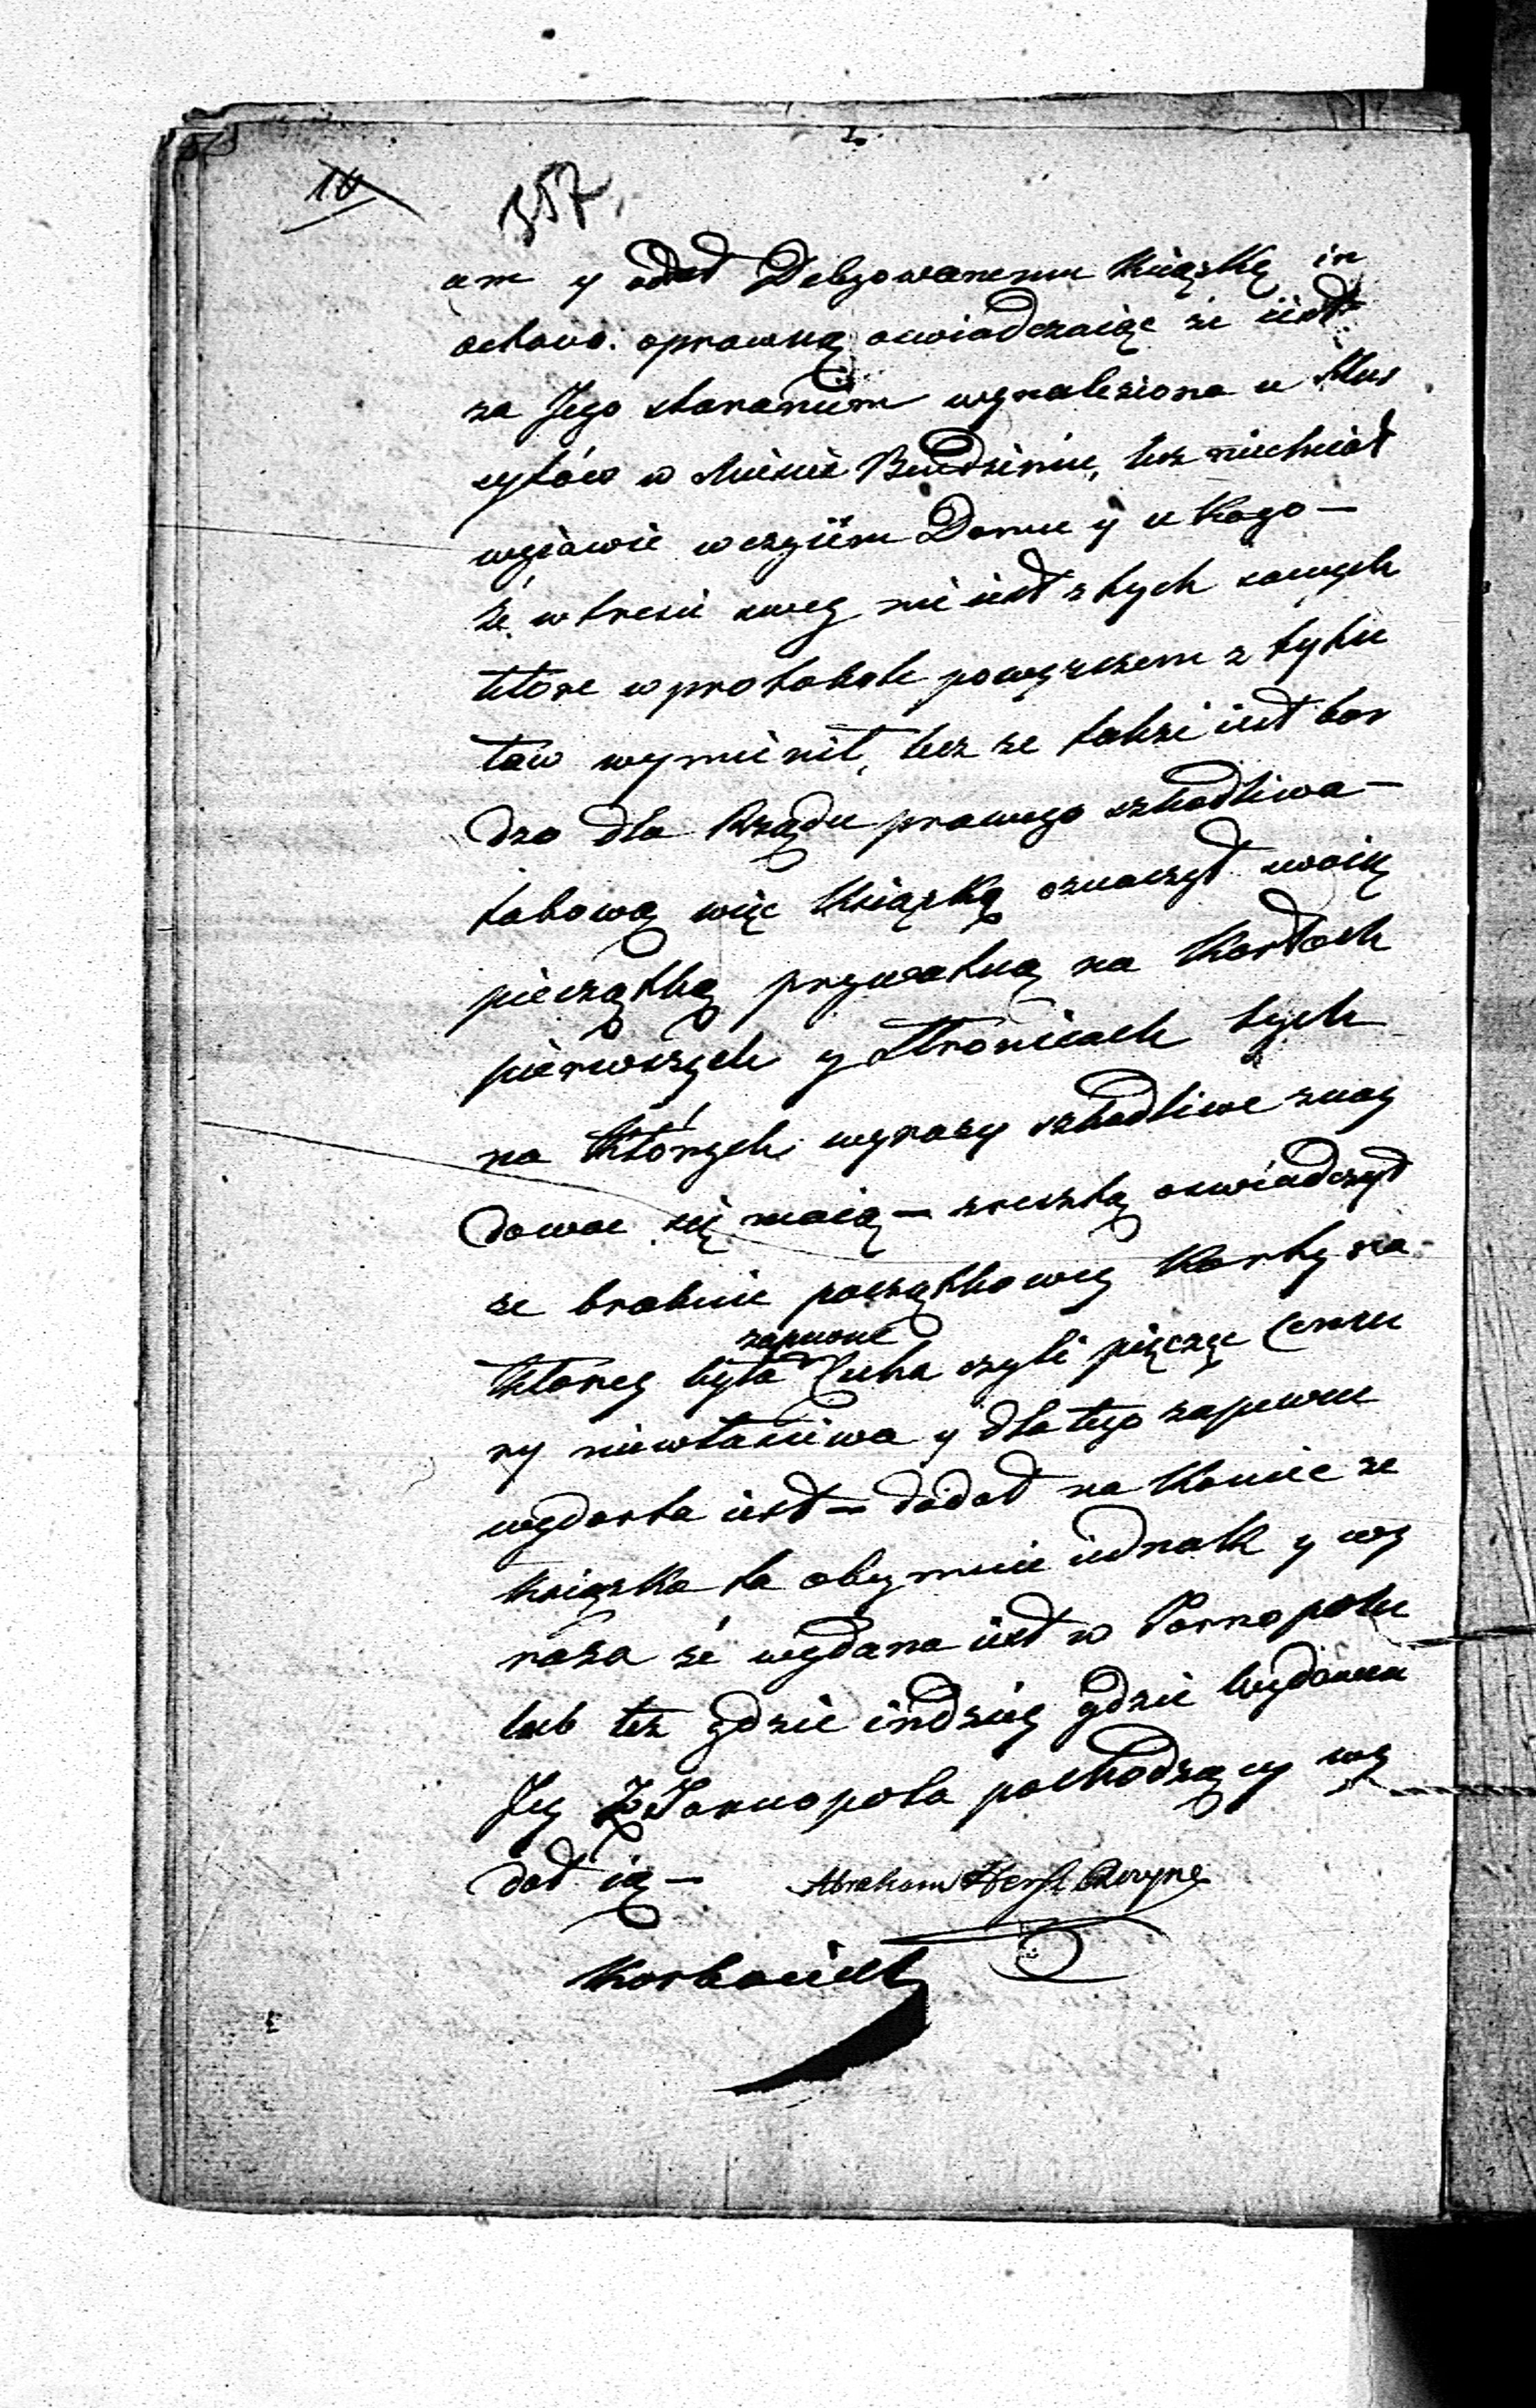 10
357.
am y oddał Delegowanemu Książkę in
octavo. oprawną oswiadczaiąc że iest
za Jego staraniem wynaleziona u Hus
sytów w Miescie Będzinie, lecz niechciał
wyiawic w czyiem Domu y u kogo —
że w tresci swey nie iest z tych samych
które w protokole powyższem z tytu
łów wymienił, lecz ze także iest bar
dzo dla Rządu prawego szkodliwa —
takową więc Książkę oznaczył swoią
pieczątką prywatną na Kartach
pierwszych y Stronicach tych
na których wyrazy szkodliwe znay
dowac się maią — zresztą oswiadczył
ze brakuie początkowey Karty na
którey była zapewne Cecha czyli pieczęc Cenzu
ry niewłasciwa y dla tego zapewne
wydarta iest — dodał na koniec ze
Książka ta obeymuie iednak y wy
raza że wydana iest w Tarnopolu
lub też gdzie indziey gdzie Wydawca
Jey z Tarnopola pochodzący wy
dał ią —
Abraham Hersz